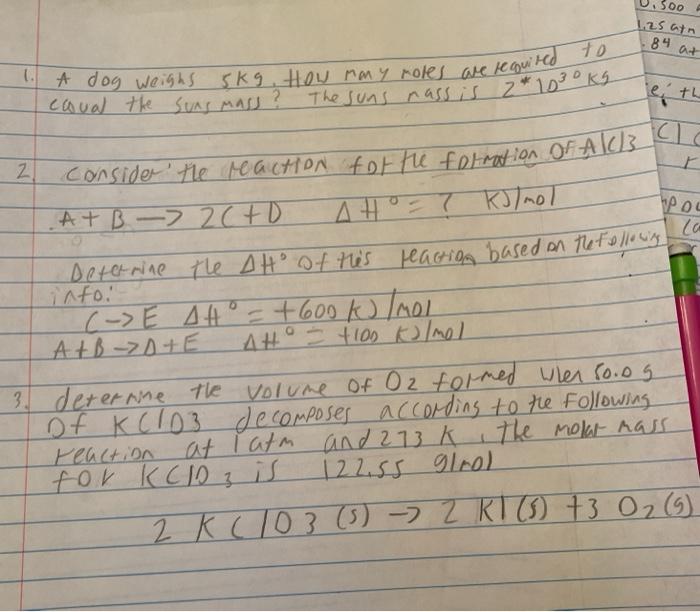 0.500
1.25 atm
.84 at
1. A dog weighs 5kg. How many moles are required to
equal the suns mass? The suns mass is 2*10^30 kg
e; th
2. Consider the reaction for the formation of AlCl3
Cl
r
A + B → 2C + D ΔH° = ? KJ/mol
Determine the ΔH° of this reaction based on the following
info:
C → E ΔH° = +600 KJ/mol
A+B → D+E ΔH° = +100 KJ/mol
3. determine the volume of O2 formed when 50.0 g
of KClO3 decomposes according to the following
reaction at 1 atm and 273 K. The molar mass
for KClO3 is 122.55 g/mol
2 KClO3 (s) → 2 Kl (s) + 3 O2 (g)